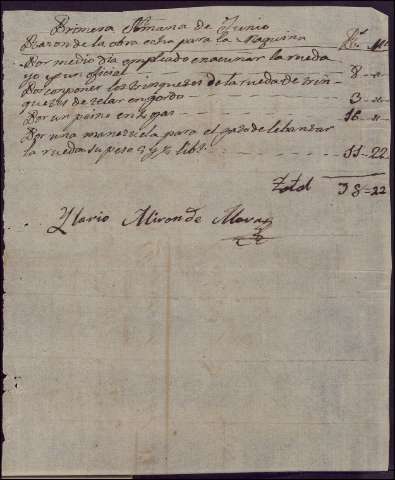 Primera Semana de Junio
Razon de la obra echa para la Maquina Rs. Ms
Por medio dia empleado en acuñar la rueda
yo y un oficial 8 - "
Por componer los trinquetes de la rueda de trin-
quetes de zelar en gordo 3 - "
Por un peine en 16 - "
Por una manezuela para el de lebanzar
la rueda su peso 2 y ½ libs. 11 - 22
Total 38 - 22
Ylario Miron de Mora